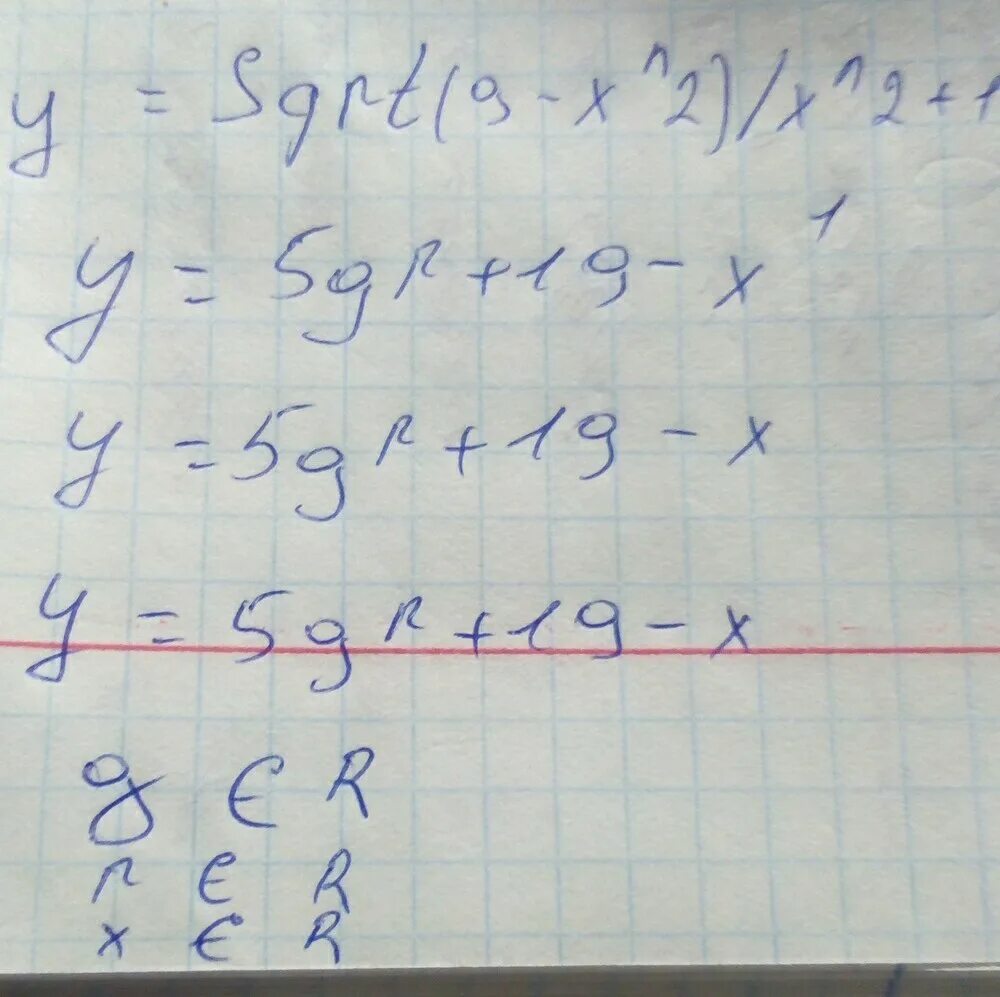 y = Sqrt(9-x^2)/x^2+1
y = 5gr+19-x¹
y = 5gr+19-x
y = 5gr+19-x
g ∈ R
r ∈ R
x ∈ R